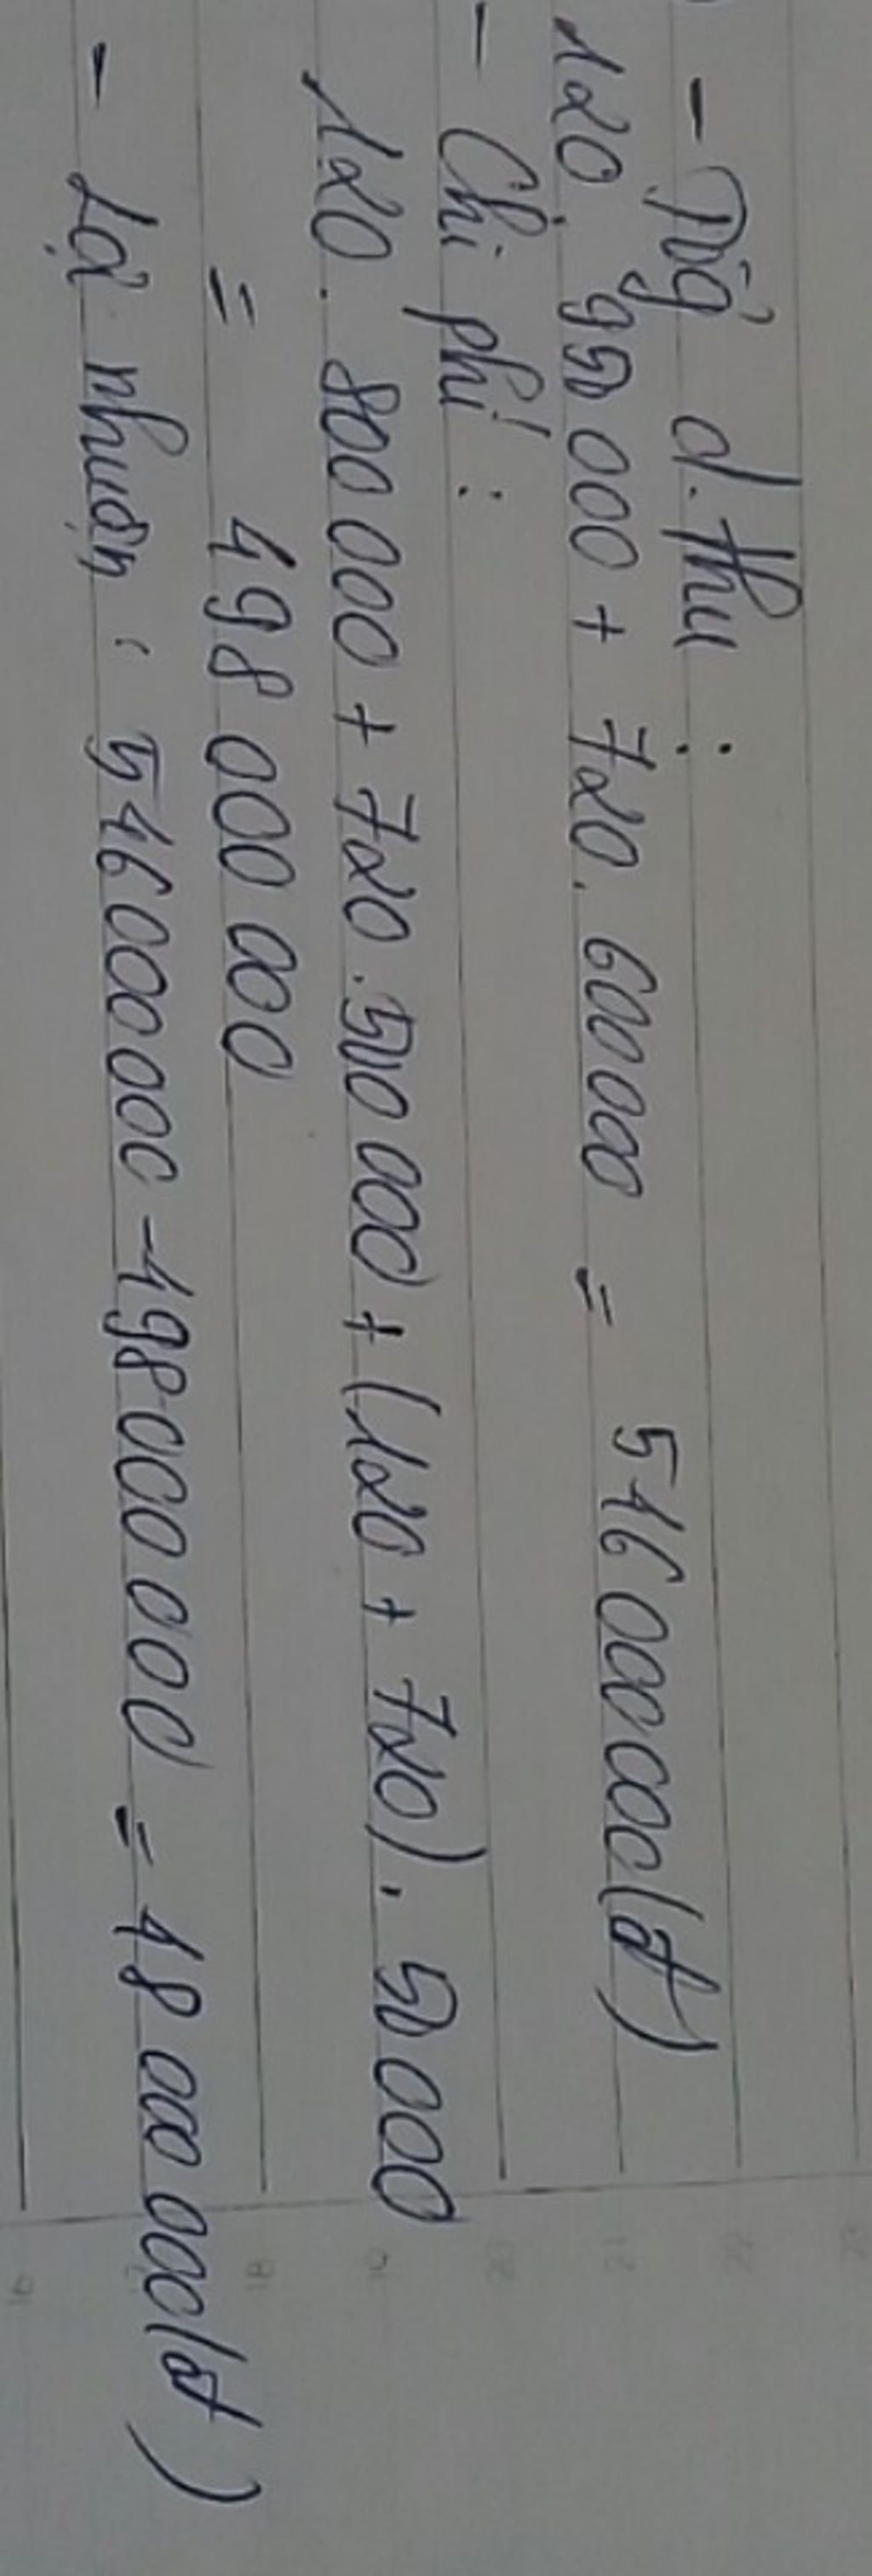 - Tổg d.thu :
120. 950 000 + 720. 600 000 = 546 000 000 (đ)
- Chi phí :
120. 800 000 + 720. 500 000 + (120 + 720). 50 000
= 498 000 000
- Lợi nhuận : 546 000 000 - 498 000 000 = 48 000 000 (đ)
16
17
18
19
20
21
22
23